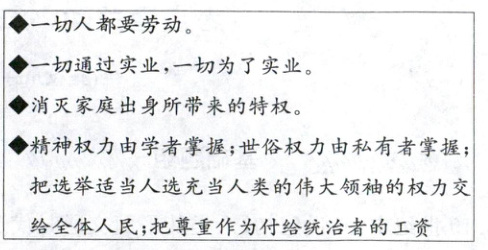 ◆一切人都要劳动。
◆一切通过实业,一切为了实业。
◆消灭家庭出身所带来的特权。
◆精神权力由学者掌握;世俗权力由私有者掌握;
把选举适当人选充当人类的伟大领袖的权力交
给全体人民;把尊重作为付给统治者的工资